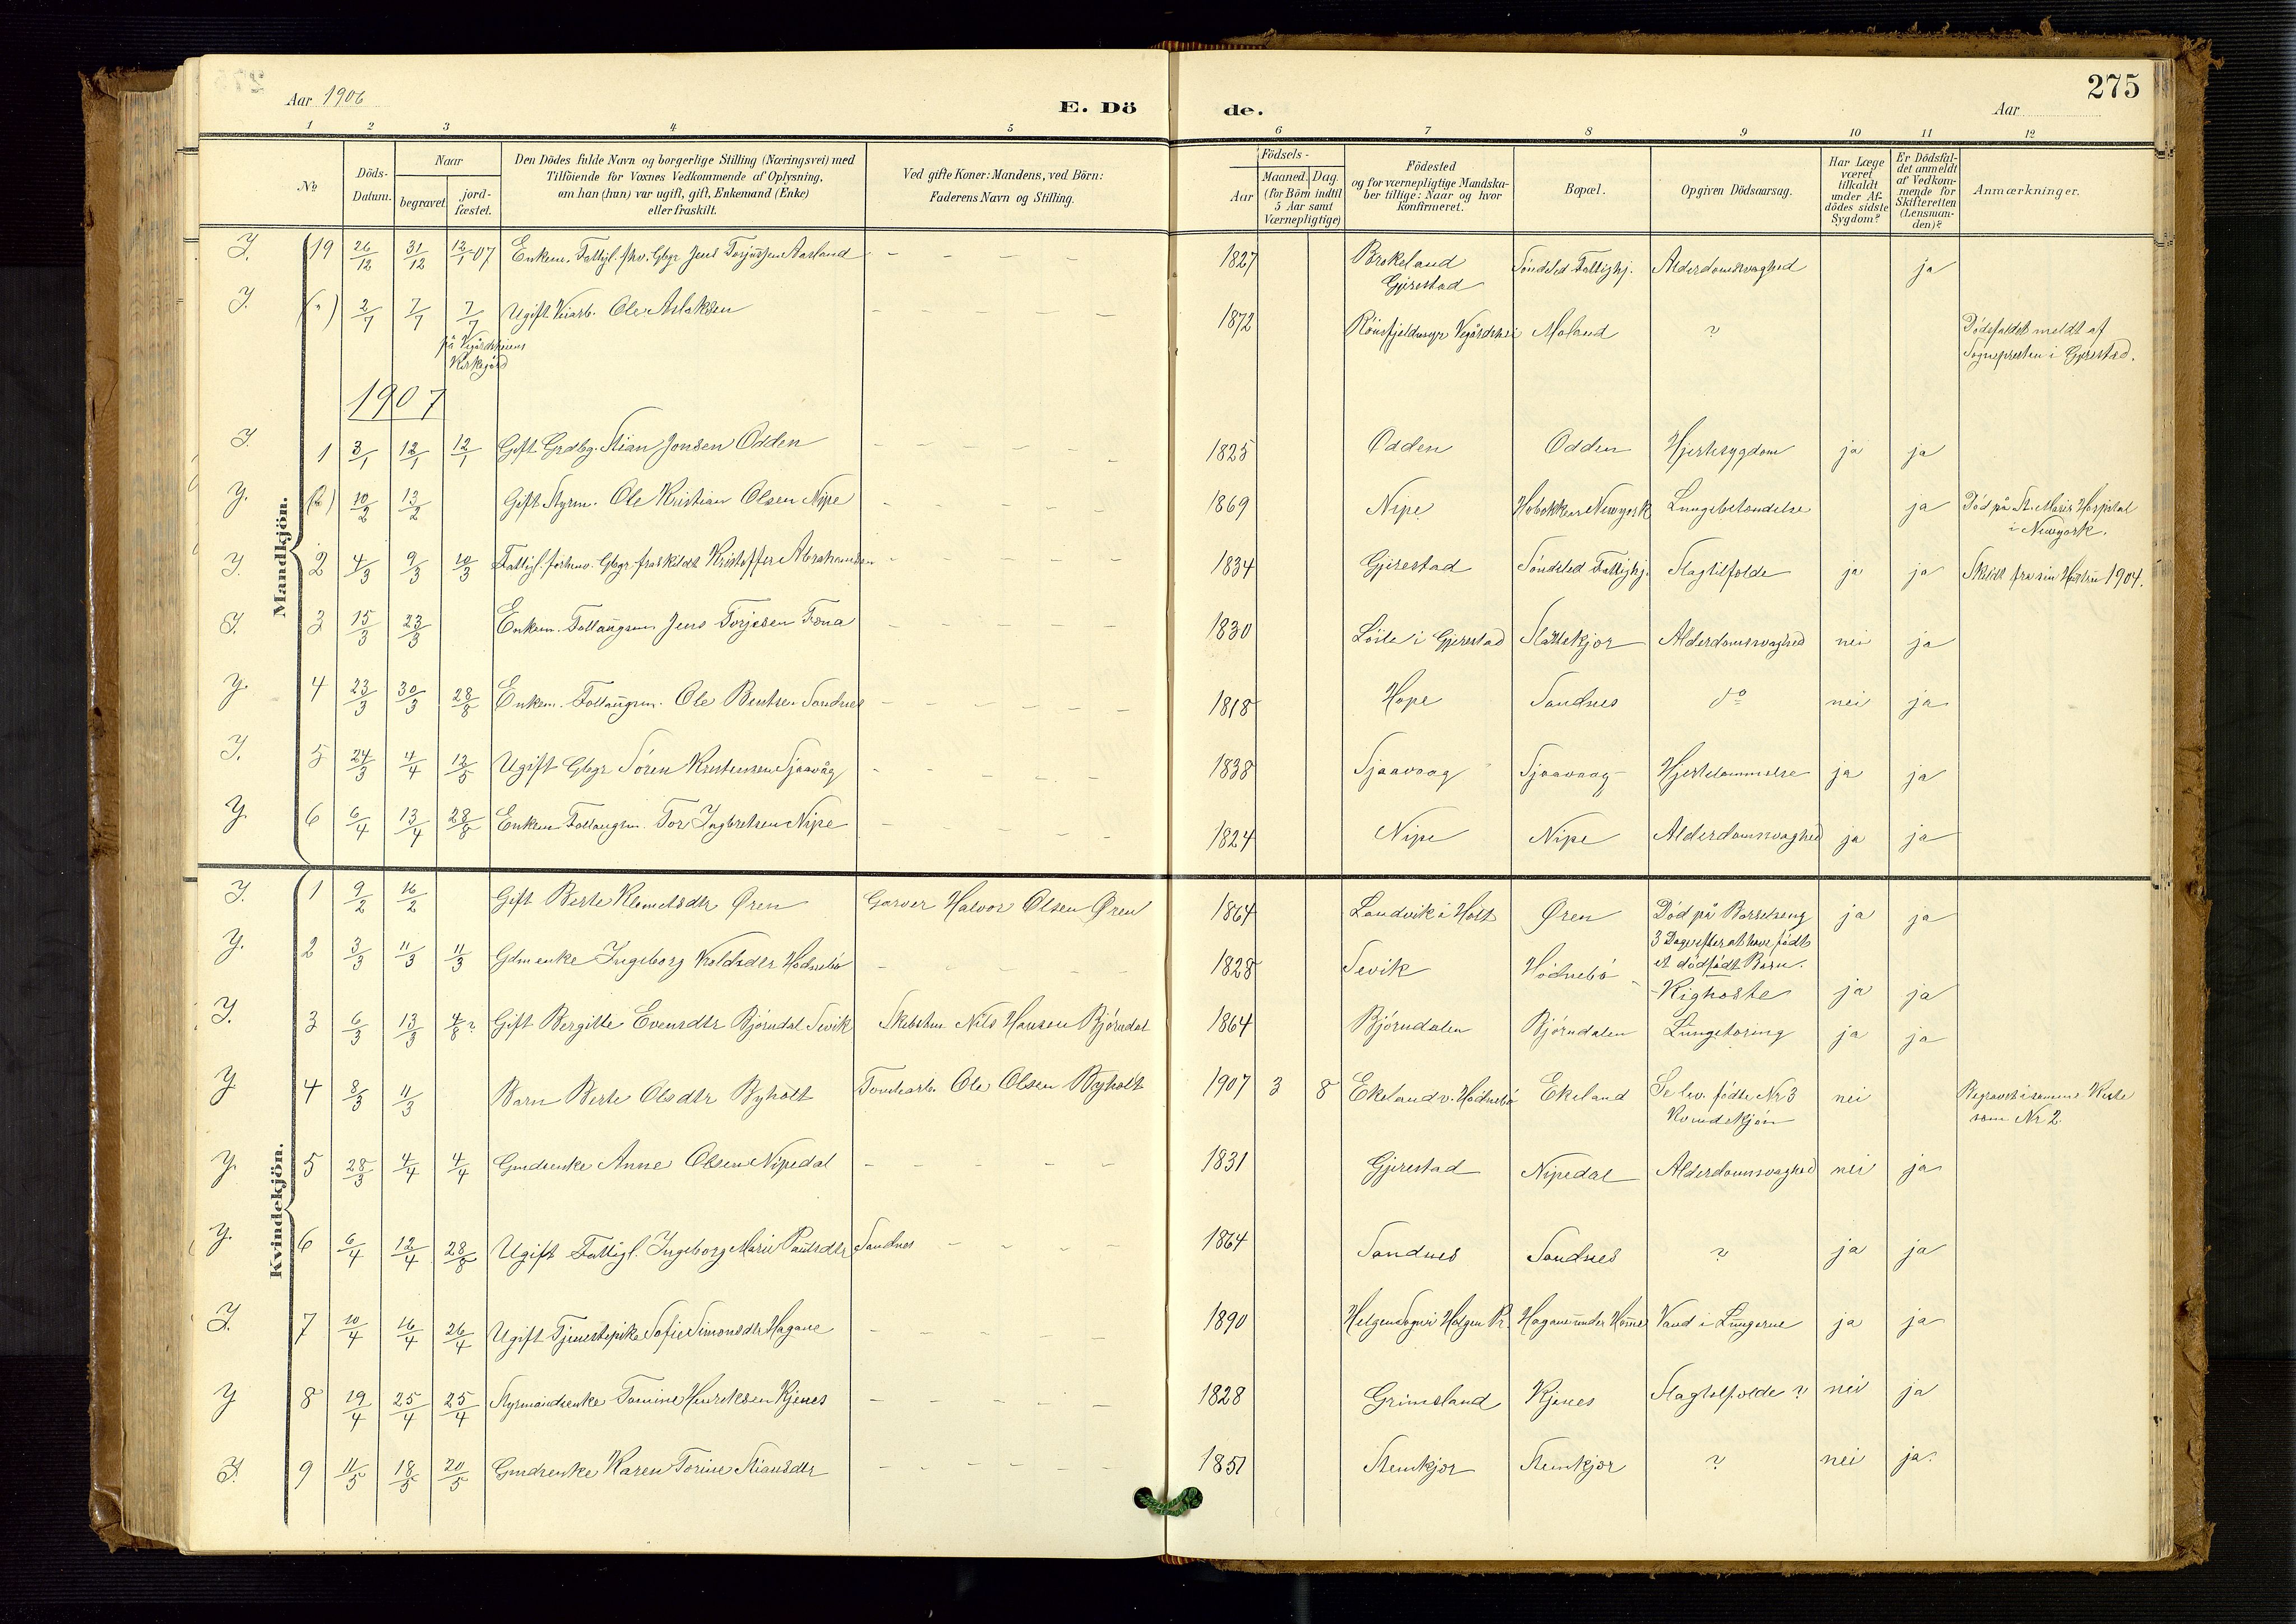 275
Aar 1906
E. Dö de.
Aar
1 2 3 4 5 6 7 8 9 10 11 12
No
Döds-Datum.
Naar
begravet.
jord-fæstet.
Den Dödes fulde Navn og borgerlige Stilling (Næringsvei) med
Tilföiende for Voxnes Vedkommende af Oplysning,
om han (hun) var ugift, gift, Enkemand (Enke)
eller fraskilt.
Ved gifte Koner: Mandens, ved Börn:
Faderens Navn og Stilling.
Födsels-
Aar
Maaned. Dag.
(for Börn indtil
5 Aar samt
Værnepligtige)
Födested
og for værnepligtige Mandska-
ber tillige: Naar og hvor
konfirmeret.
Bopæl.
Opgiven Dödsaarsag.
Har Læge
været
tilkaldt
under Af-
dödes sidste
Sygdom?
Er Dödsfal-
det anmeldt
af Vedkom-
mende for
Skifteretten
(Lensman-
den)?
Anmærkninger.
Mandkjön.
I. 19 26/12 31/12 12/1-07 Enkem. Fattigl. fhv. Gbgr Jens Torjussen Aasland – – – – 1827 Brokeland Gjerestad Söndeled Fattighj. Alderdomssvaghed ja
I. 2/7 7/7 7/7 på Vegårdsheiens Kirkegård Ugift Veiarb. Ole Aslaksen – – – – – 1872 Vegårdshei Moland ? Dödsfaldet meldt af Sognepresten i Gjerestad.
1907
I. 1 3/1 12/1 12/1 Gift Grdbg. Stian Jonsen Odden – – – – – 1825 Odden Odden Hjertesygdom ja ja
Y. 10/2 13/2 Gift Styrm. Ole Kristian Olsen Nipe – – – – – 1869 Nipe Hobokken Newyork Lungebetændelse ja Död på St. Maris Hospital i Newyork.
I. 2 4/3 9/3 10/3 Fattigl. forhenv. Gbgr. fraskildt Kristoffer Abrahamsen – – – – – 1834 Gjerestad Söndeled Fattighj. Slagtilfælde ja ja Skildt fra sin Hustru 1904.
I. 3 15/3 23/3 Enkem. Jens Torjesen – – – – – 1830 Löite i Gjerestad Alderdomssvaghed nei ja
Y. 4 23/3 30/3 28/8 Enkem. Ole Bentsen Sandnes – – – – – 1818 Hope Sandnes do nei ja
I. 5 24/3 4/4 12/5 Ugift Gbgr Sören Kristensen Sjaavåg – – – – – 1838 Sjaavaag Sjaavaag Hjertelammelse ja ja
Y. 6 6/4 13/4 28/8 Enkem Tor Ingbretsen Nipe – – – – – 1824 Nipe Nipe Alderdomssvaghed ja ja
Kvindekjön.
I. 1 9/2 16/2 Gift Berte Klemetsdtr Øren Garver Halvor Olsen Øren 1864 Landvik i Holt Øren Död på Barselseng 3 Dage efter at have födt et dödfödt Barn. ja ja
Y. 2 3/3 11/3 11/3 Gdmenke Ingeborg Hödnebö – – – – 1828 Sevik Hödnebö – Kighoste ja ja
I. 3 6/3 13/3 4/8? Gift Bergitte Evensdtr Björndal Sevik Skibstm. Nils Hansen Björndal 1864 Björndalen Björndalen Lungetæring ja ja
Y. 4 8/3 11/3 Barn Berte Olsdtr Byholt Tomtearb. Ole Olsen Byholt 1907 3 8 Ekeland v. Hödnebö Ekeland Se lev. födte Nr 3 Kvindekjön nei Begravet i samme Kiste som Nr 2.
Y. 5 28/3 4/4 4/4 Gmdsenke Anne Olsen Nipedal – – – – – 1831 Gjerestad Nipedal Alderdomssvaghed nei ja
Y. 6 6/4 12/4 28/8 Ugift Fattigl. Ingeborg Marie Paulsdtr Sandnes – – – – 1864 Sandnes Sandnes ? ja ja
I. 7 10/4 16/4 26/4 Ugift Tjenestepike Sofie Simonsdtr Hagane – – – – – 1890 Helgen Sogn i Holgen Pr. Hagane under Homme Vand i Lungerne ja ja
Y 8 19/4 25/4 25/4 Styrmandsenke Tomine Henriksen Kjenes – – – – – 1828 Grimsland Kjenes Slagtilfælde ? nei ja
I. 9 11/5 18/5 20/5 Gmdsenke Karen Torine Stiansdtr – – – – – – 1851 Stenkjær Stenkjær ? nei ja.